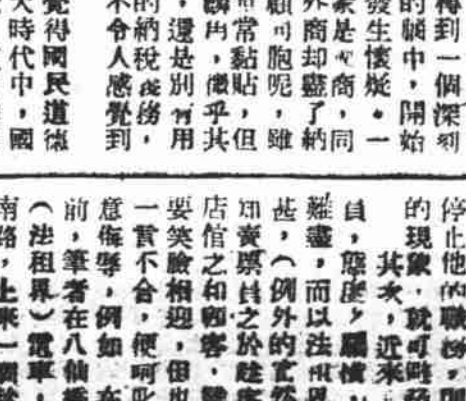 得到一個深刻
的腦中，開始
發生懷疑。一
是商，同
外商却盡了納
顧同胞呢，雖
常黏貼，但
角，幾乎其
，還是別有用
的納稅義務，
不令人感覺到
覺得國民道德
大時代中，國
停止他的職務，
的現象，就可
其次，近來
員，態度，驕橫，
難盡，而以法租界
甚，（例外的
賣票員之於趁客
店舘之和顧客，
要笑臉相迎，但
一言不合，便呵叱
意侮辱，例如 在
前，筆者在八仙橋
（法租界）電車，
南路，上來一個